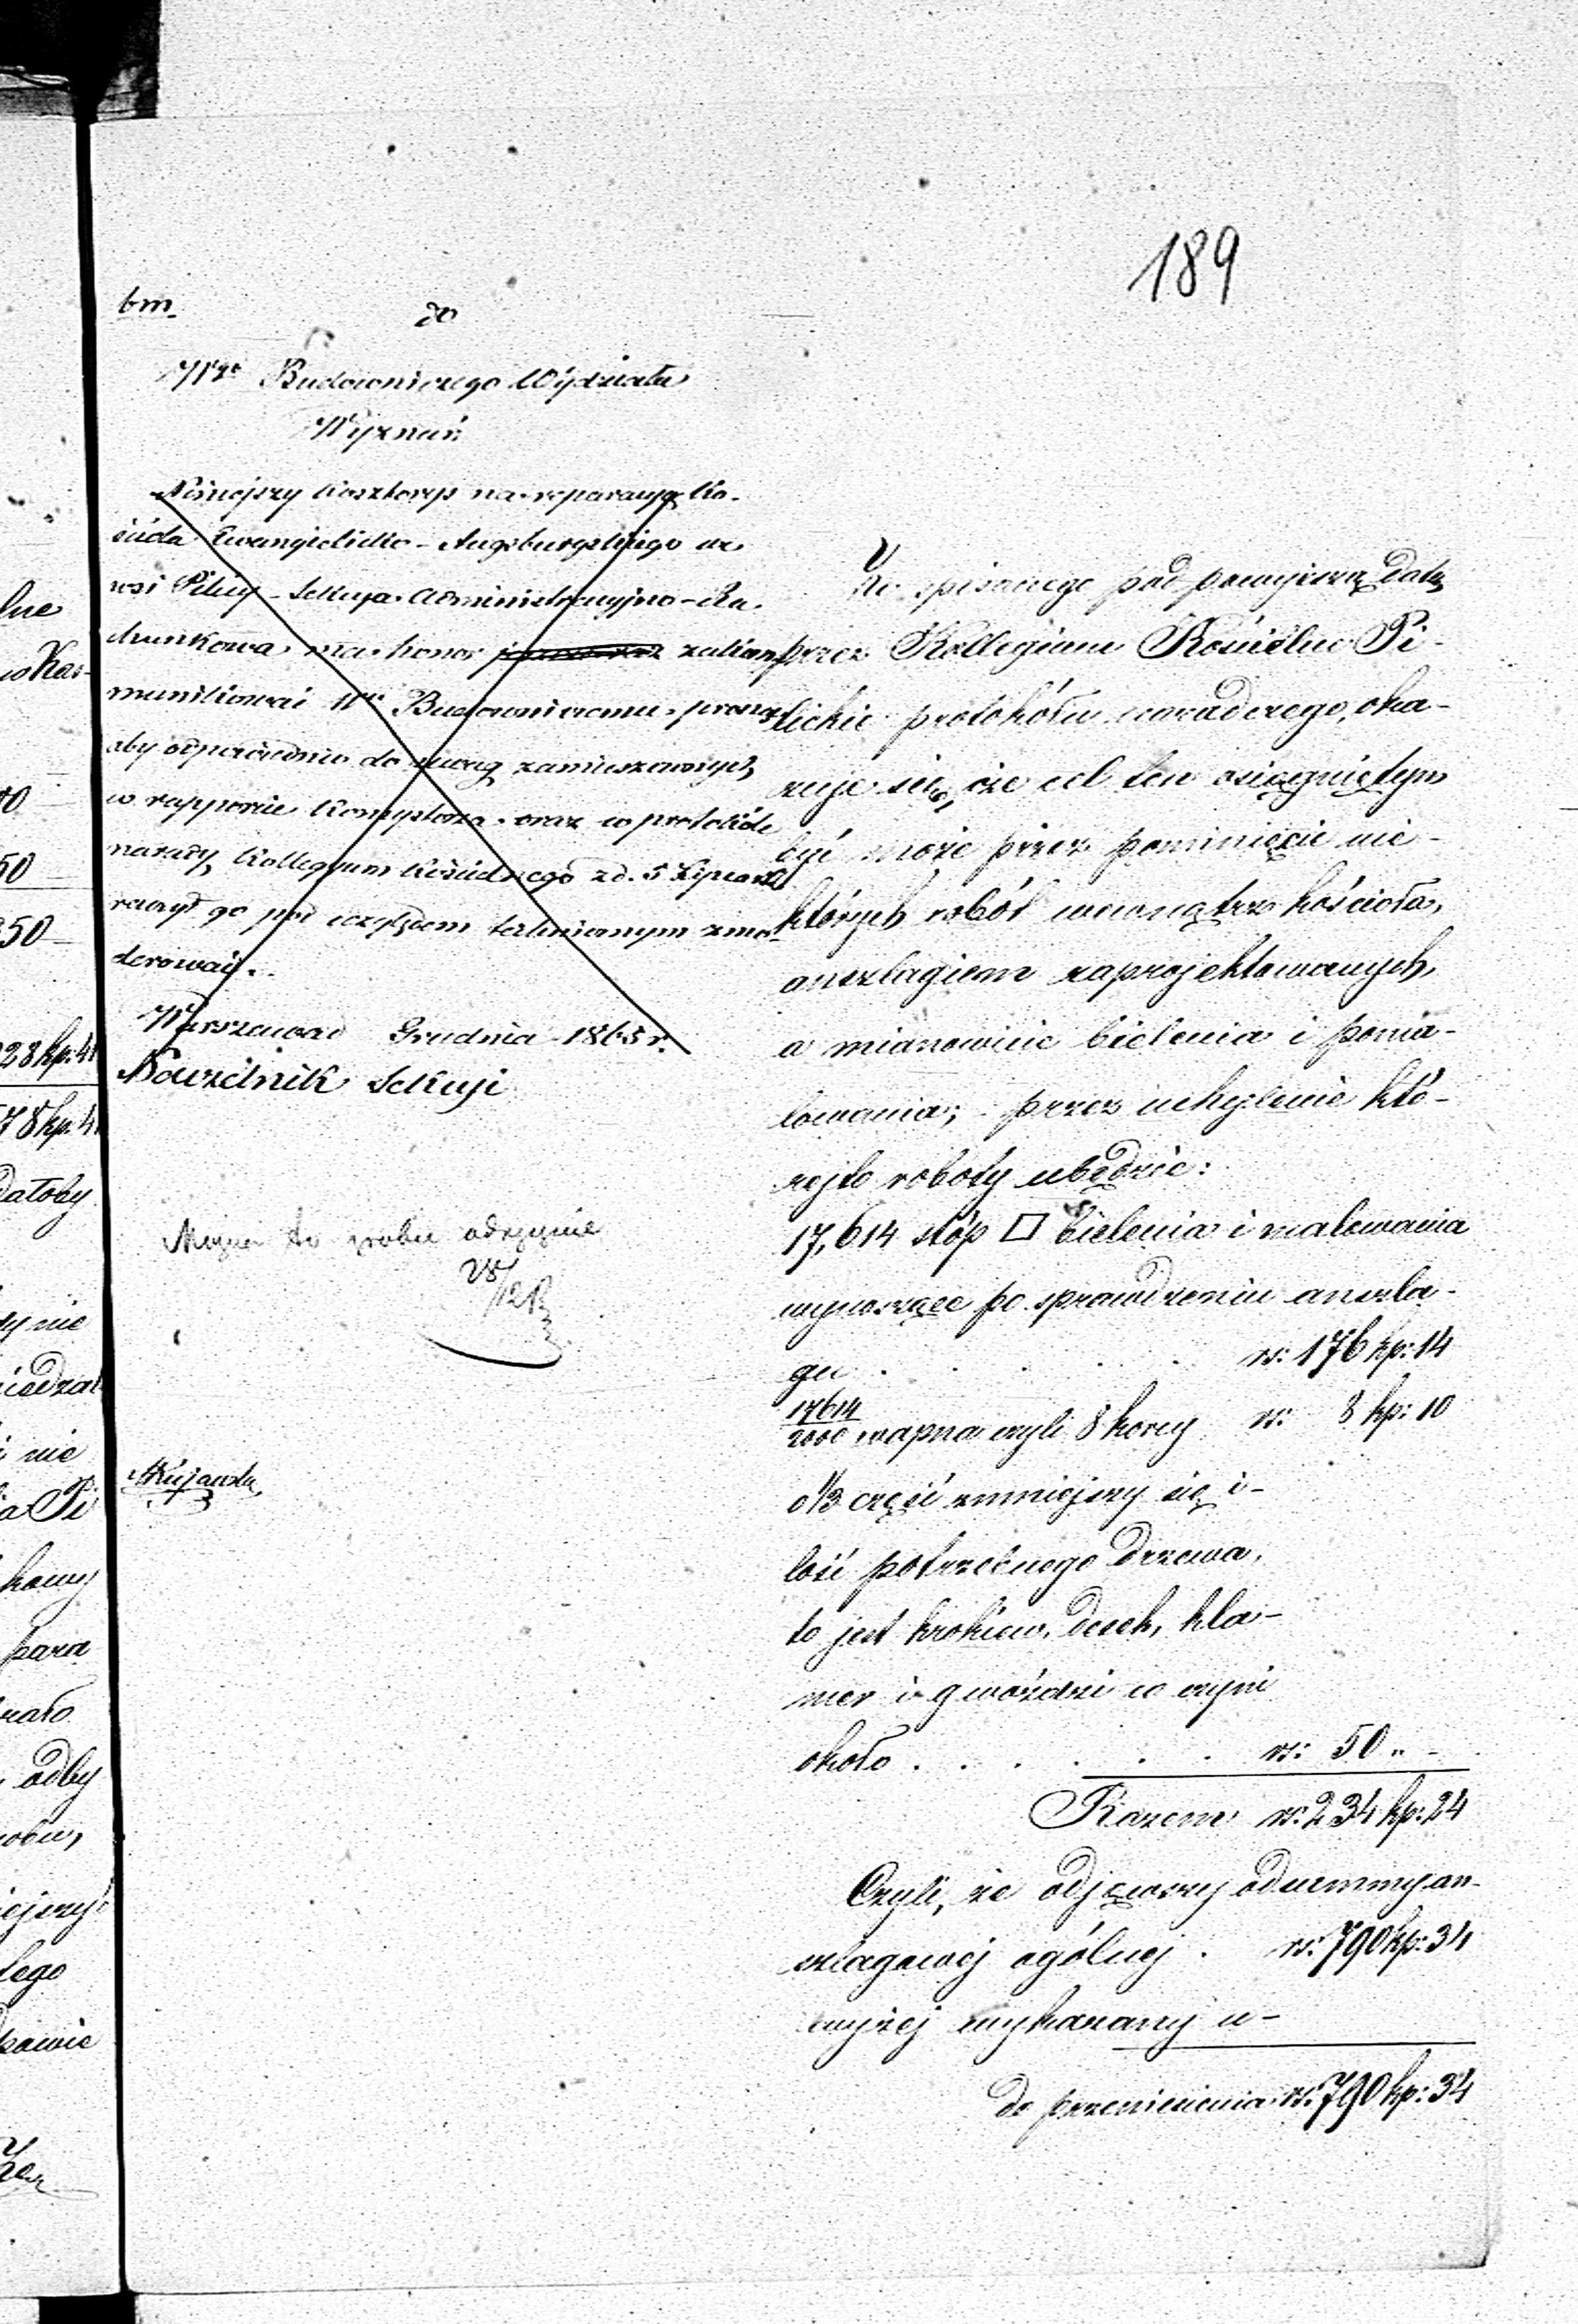 189
bm.
do
Wgo Budowniczego Wydziału
Wyznań
Niniejszy kosztorys na reparacyą Ko-
ścioła Ewangielicko-Augsburgskiego we
wsi Pilicy - Sekcya Administracyjno-Ra-
chunkowa ma honor zakom-
munikować Wu Budowniczemu, prosząc
aby odpowiednio do uwag zamieszczonych
w rapporcie Konsystorza oraz w protokóle
narady Kollegium Kościelnego z d. 5 Lipca
raczył go pod względem technicznym zmo-
derować.
Warszawa d Grudnia 1865 r.
Naczelnik Sekcyi
28/12
Ze spisanego pod powyższą datą
przez Kollegium Kościelne Pi-
lickie protokółu naradczego, oka-
zuje się, że cel ten osiągniętym
być może przez pominięcie nie-
których robót wewnątrz kościoła,
anszlagiem zaprojektowanych,
a mianowicie bielenia i poma-
lowania; przez uchylenie któ-
rejto roboty ubędzie:
17,614 stóp □ bielenia i malowania
wynoszące po sprawdzeniu anszla-
gu . . . . . rs: 176 kp: 14
17614/2000 wapna czyli 8 korcy rs: 8 kp: 10
o 1/3 część zmniejszy się i-
lość potrzebnego drzewa,
to jest krokiew, desek, kla-
mer i gwoździ co czyni
około . . . . . . rs: 50 „ -
Razem rs: 234 kp: 24
Czyli, że odjąwszy od summy an-
szlagowej ogólnej . rs: 790 kp: 34
wyżej wykazany u-
do przeniesienia rs: 790 kp: 34